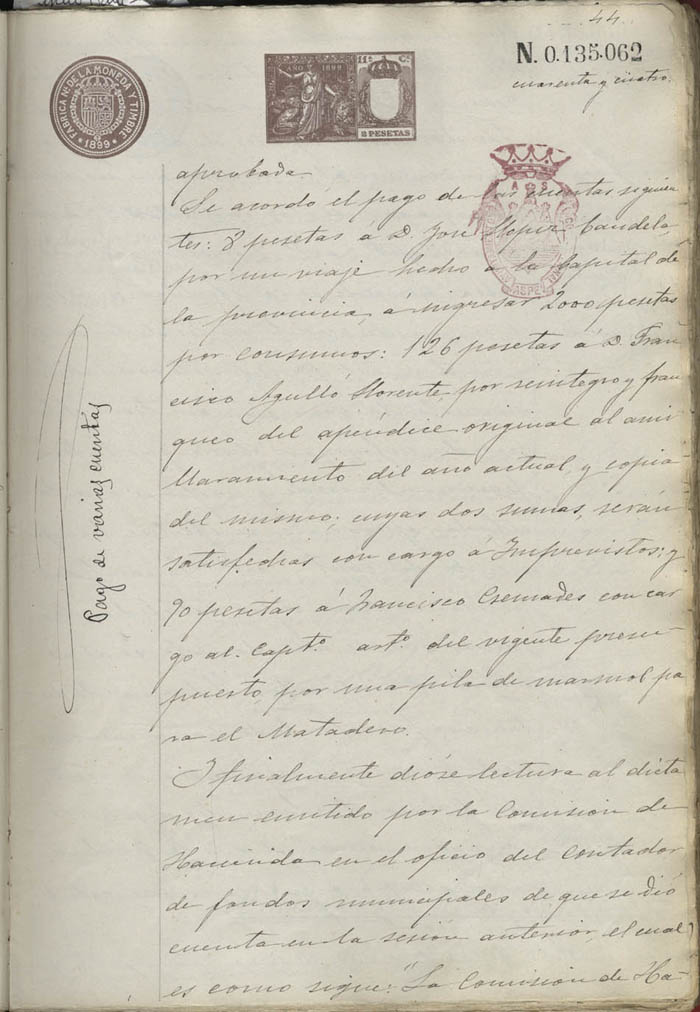 44
N. 0.135.062
cuarenta y cuatro.
FABRICA Nal. DE LA MONEDA Y TIMBRE
1899
AÑO 1899
11ª C.
2 PESETAS
aprobada.
Se acordó el pago de las cuentas siguien
tes: 8 pesetas á D. José Llopis Candela,
por un viaje hecho á la Capital de
la provincia, á ingresar 2000 pesetas
por consumos: 126 pesetas á D. Fran
cisco Agulló Llorente, por reintegro y fran
queo del apéndice original al ami
llaramiento del año actual, y copia
del mismo; cuyas dos sumas, serán
satisfechas con cargo á Imprevistos; y
90 pesetas á Francisco Cremades con car
go al Capto. arto. del vigente presu-
puesto, por una pila de marmol pa
ra el Matadero.
Y finalmente dióse lectura al dicta
men emitido por la Comisión de
Hacienda en el oficio del Contador
de fondos municipales de que se dió
cuenta en la sesión anterior, el cual
es como sigue: "La Comisión de Ha-
Pago de varias cuentas